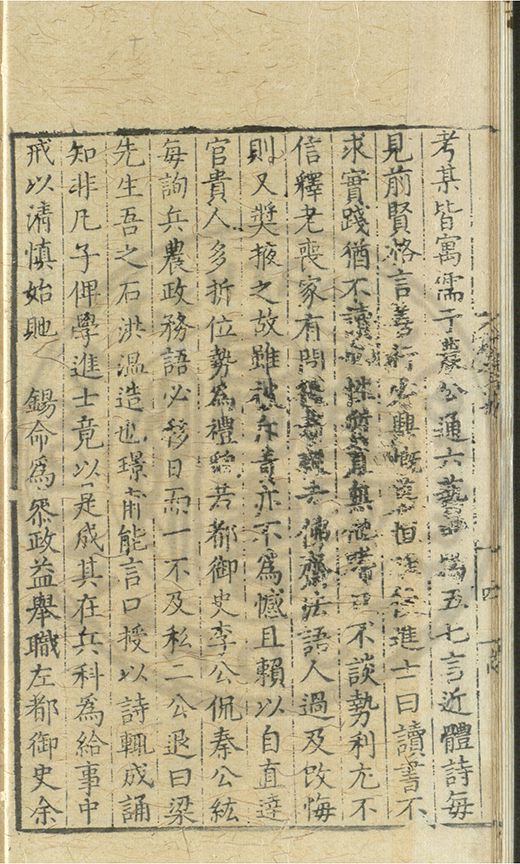 考某皆寓濡于書公通六藝喜爲五七言近體詩每
見前賢格言善行必興慨慕恒誨進士曰讀書不
求實踐猶不讀也性質直無他嗜口不談勢利尤不
信釋老喪家有問佛齋法語人過及改悔
則又奬掖之故雖被斥責亦不爲憾且賴以自直達
官貴人多折位勢爲禮貌若都御史李公侃秦公紘
每詢兵農政務語必移日而一不及私二公退曰梁
先生吾之石洪溫造也璟甫能言口授以詩輒成誦
知非凡子俾學進士竟以是成其在兵科爲給事中
戒以清慎始貤 錫命爲叅政益舉職左都御史余